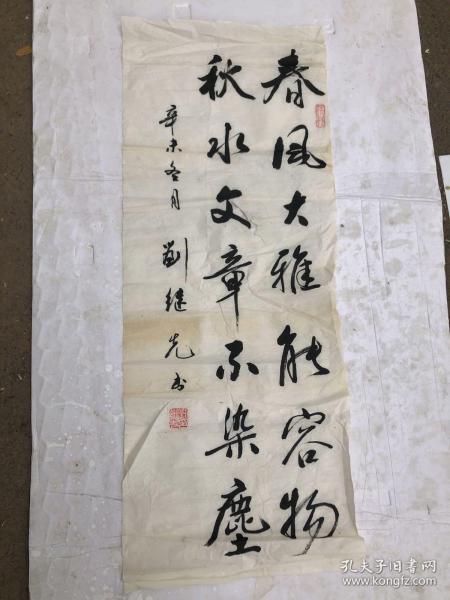 春風大雅能容物
秋水文章不染塵
辛未冬月
劉繼先书
孔夫子旧书网
www.kongfz.com